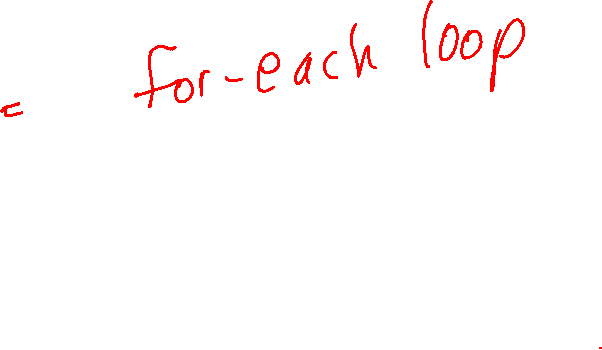 for-each loop